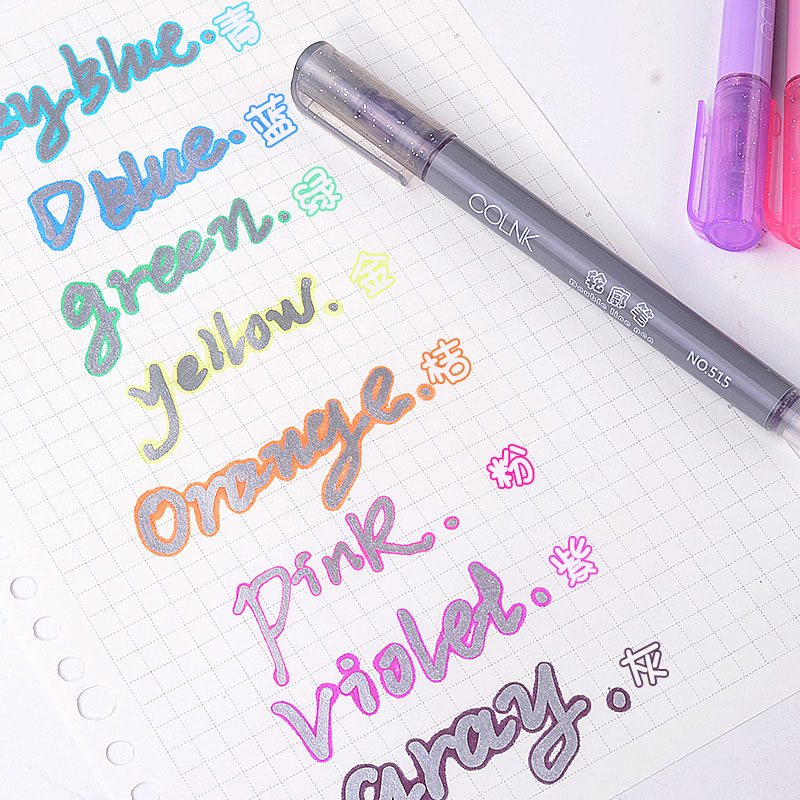 ky-blue.青
D blue.蓝
green.绿
yellow.金
Orange.桔
Pink.粉
Violet.紫
gray.灰
COLNK
轮廓笔
Double line pen
NO.515